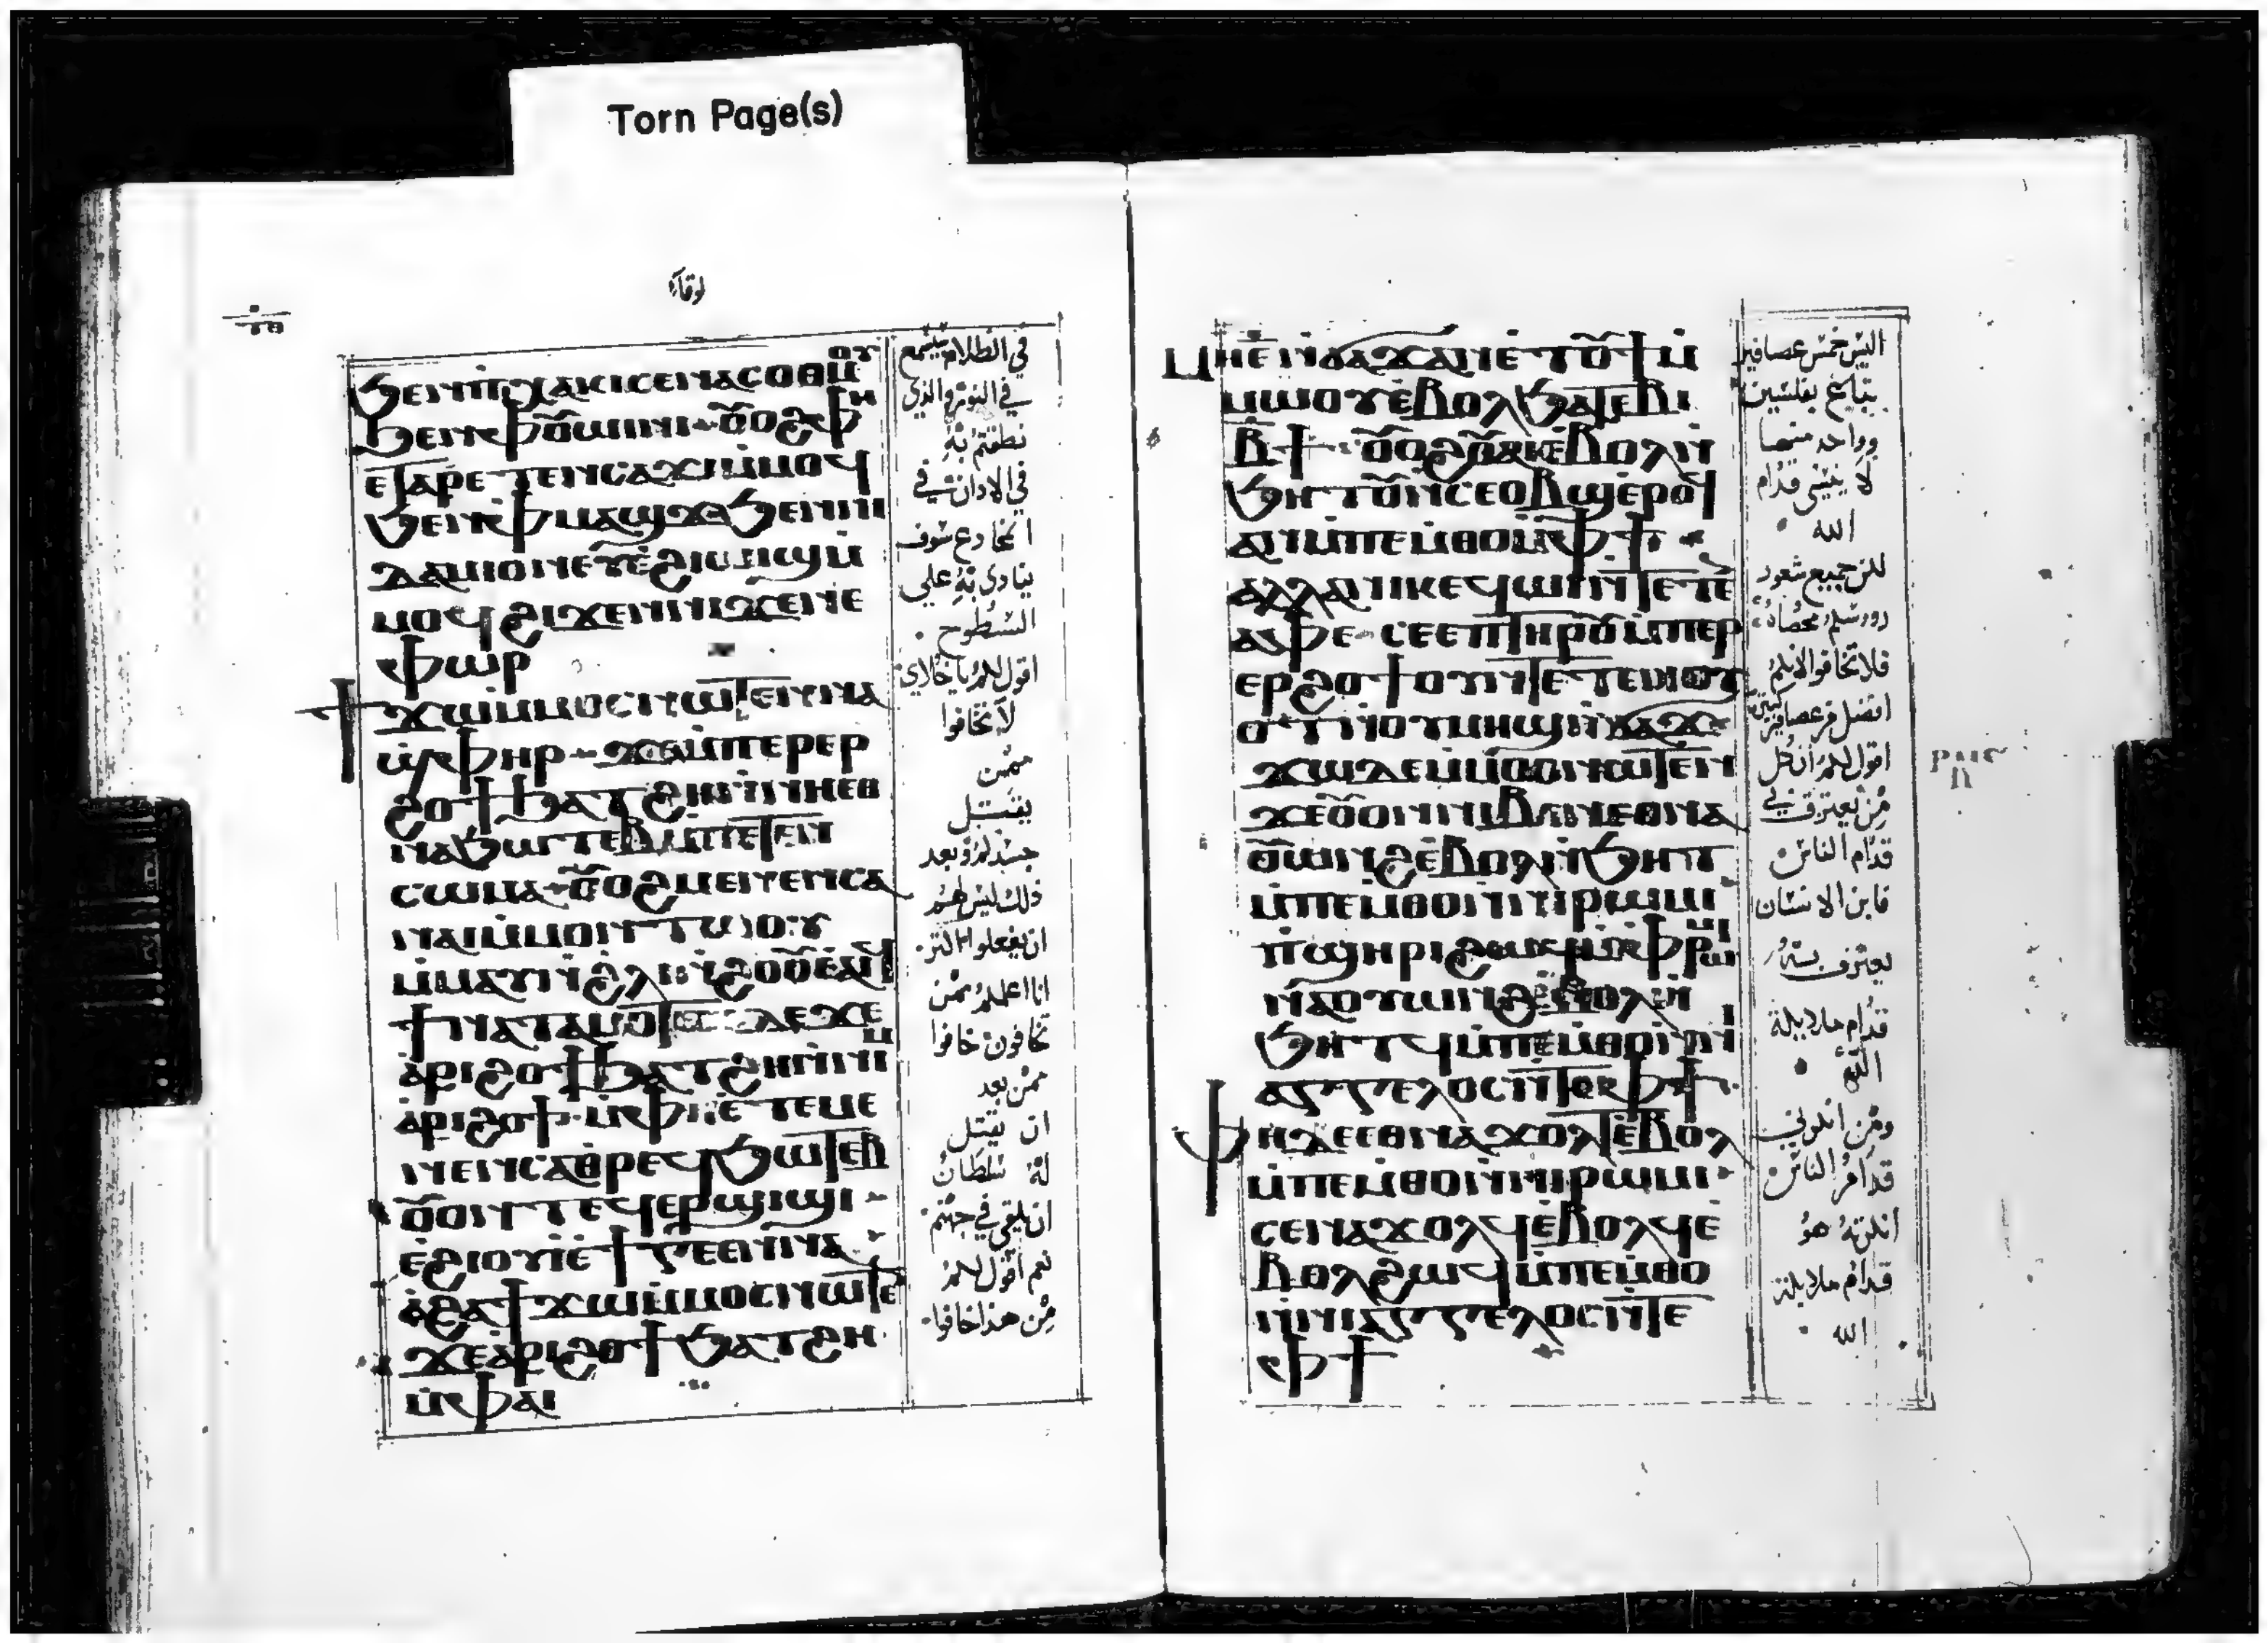 Torn Page(s)
لوقا
ϧⲉⲛⲡⲭⲁⲕⲓⲥⲉⲛⲁⲥⲟⲑⲙⲟⲩ
ϧⲉⲛⲫⲟⲩⲱⲓⲛⲓ ⲟⲩⲟϩⲫⲏ
ⲉⲧⲁⲣⲉⲧⲉⲛⲥⲁϫⲓⲙⲙⲟϥ
ϧⲉⲛⲫⲙⲁϣϫ ϧⲉⲛⲛⲓ
ⲧⲁⲙⲓⲟⲛⲉⲩⲉϩⲓⲱⲓϣⲙ
ⲙⲟϥϩⲓϫⲉⲛⲛⲓϫⲉⲛⲉ
ⲫⲱⲣ
ϯϫⲱⲙⲙⲟⲥⲛⲱⲧⲉⲛⲛⲁ
ϣⲫⲏⲣ ϫⲉⲙⲡⲉⲣⲉⲣ
ϩⲟϯϧⲁⲧϩⲏⲛⲛⲏⲉⲑ
ⲛⲁϧⲱⲧⲉⲃⲙⲡⲉⲧⲉⲛ
ⲥⲱⲙⲁ ⲟⲩⲟϩⲙⲉⲛⲉⲛⲥⲁ
ⲛⲁⲓⲙⲙⲟⲛⲧⲱⲟⲩ
ⲙⲙⲁⲩⲛϩⲗⲓⲛϩⲟⲩⲟⲉⲁⲓϥ
ϯⲛⲁⲧⲁⲙⲱⲧⲉⲛ ⲇⲉϫⲉ
ⲁⲣⲓϩⲟϯϧⲁⲧϩⲏⲛⲛⲓⲙ
ⲁⲣⲓϩⲟϯ ⲙⲫⲏⲉⲧⲉⲙⲉ
ⲛⲉⲛⲥⲁⲑⲣⲉϥϧⲱⲧⲉⲃ
ⲟⲩⲟⲛⲧⲉϥⲉⲣϣⲓϣⲓ
ⲉϩⲓⲟⲩⲓⲉϯⲅⲉⲉⲛⲛⲁ
ⲁϩⲁϯϫⲱⲙⲙⲟⲥⲛⲱⲧⲉ
ϫⲉⲁⲣⲓϩⲟϯϧⲁⲧϩⲏ
ⲙⲫⲁⲓ
في الظلام يسمع
في النور والذي
نطقتم به
في الاذان في
المخادع سوف
ينادى به على
السطوح
اقول لكم يا خلاي
لا تخافوا
ممن
يقتل
جسدكم وبعد
ذلك ليس لهم
ان يفعلوا اكثر
انا اعلمكم ممن
تخافون خافوا
ممن بعد
ان يقتل
له سلطان
ان يلقي في جهنم
نعم اقول لكم
من هذا خافوا
ⲙⲏⲉⲛϭⲁϫⲁⲛⲉⲧⲟⲩϯⲙ
ⲙⲱⲟⲩⲉⲃⲟⲗϧⲁⲧⲉⲃⲓ
ⲃϯ ⲟⲩⲟϩⲟⲩⲁⲓⲉⲃⲟⲗⲛ
ϧⲏⲧⲟⲩⲛⲥⲉⲟⲃϣⲉⲣⲟϥ
ⲁⲛⲙⲡⲉⲙⲑⲟⲙⲫϯ
ⲁⲗⲗⲁⲛⲓⲕⲉϥⲱⲓⲛⲧⲉⲧⲉ
ⲁⲫⲉ ⲥⲉⲉⲡⲧⲏⲣⲟⲩⲙⲡⲉⲣ
ⲉⲣϩⲟϯⲟⲩⲛⲧⲉⲧⲉⲛⲟⲩ
ⲟⲧⲛⲟⲩⲙⲏϣⲛϭⲁϫ
ϫⲱⲇⲉⲙⲙⲟⲥⲛⲱⲧⲉⲛ
ϫⲉⲟⲩⲟⲛⲛⲓⲃⲉⲛⲉⲑⲛⲁ
ⲟⲩⲱⲛϩⲉⲃⲟⲗⲛϧⲏⲧ
ⲙⲡⲉⲙⲑⲟⲛⲛⲓⲣⲱⲙⲓ
ⲡϣⲏⲣⲓϩⲱϥⲙⲫⲣⲱⲙⲓ
ⲛⲁⲟⲩⲱⲛϩⲉⲃⲟⲗⲛ
ϧⲏⲧϥⲙⲡⲉⲙⲑⲟⲛⲛⲓ
ⲁⲅⲅⲉⲗⲟⲥⲛⲧⲉⲫϯ
ⲫⲏⲇⲉⲉⲑⲛⲁϫⲟⲗⲧⲉⲃⲟⲗ
ⲙⲡⲉⲙⲑⲟⲛⲛⲓⲣⲱⲙⲓ
ⲥⲉⲛⲁϫⲟⲗϥⲉⲃⲟⲗϥⲉ
ⲃⲟⲗϩⲱϥⲙⲡⲉⲙⲑⲟ
ⲛⲛⲓⲁⲅⲅⲉⲗⲟⲥⲛⲧⲉ
ⲫϯ
اليس خمس عصافير
يتباع بفلسين
وواحد منها
لا ينسى قدام
الله
لكن جميع شعور
روسكم محصاة
فلا تخافوا لانكم
افضل من عصافير كثير
اقول لكم ان كل
من يعترف بي
قدام الناس
فابن الانسان
يعترف به
قدام ملايكة
الله
ومن انكرني
قدام الناس
انكرته هو
قدام ملايكة
الله